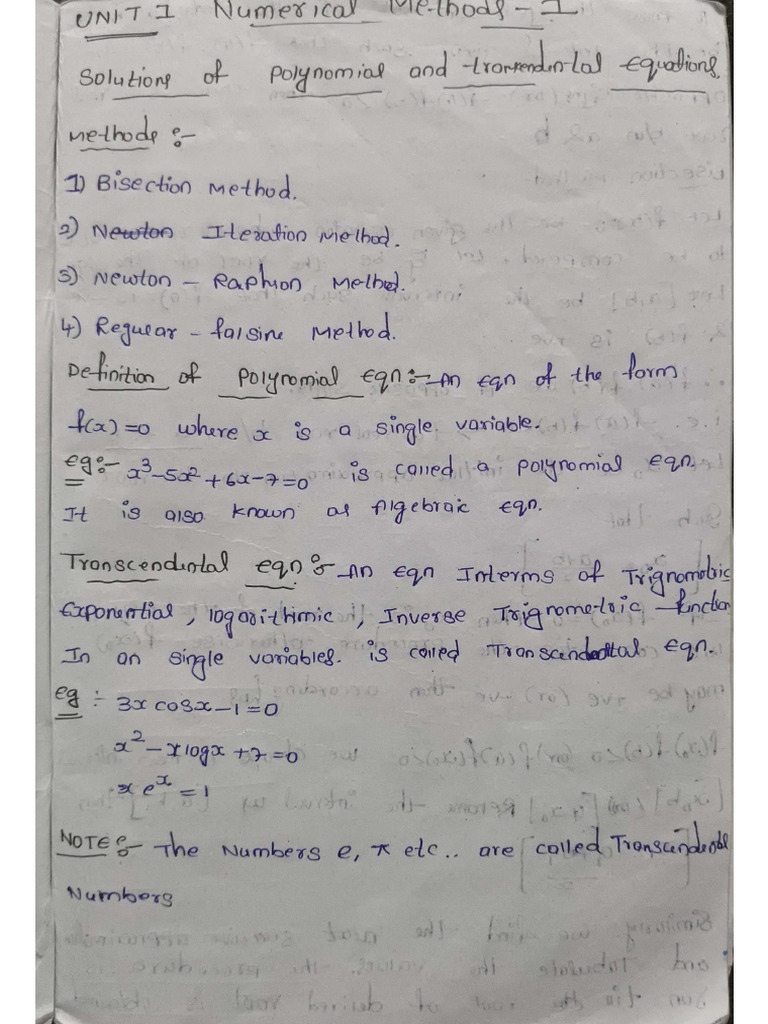 UNIT 1 Numerical Methods - I
Solutions of Polynomial and transendental Equations.
Methods :-
1) Bisection Method.
2) Newton Iteration Method.
3) Newton - Raphson Method.
4) Regular - falsine Method.
Definition of Polynomial eqn :- An eqn of the form
f(x) = 0 where x is a single variable.
eg :- x³ - 5x² + 6x - 7 = 0 is called a polynomial eqn.
It is also known as Algebraic eqn.
Transcendental eqn :- An eqn Interms of Trignometric
Exponential, logarithmic, Inverse Trignometric function
In an single variables. is called Transcendedtal eqn.
eg :- 3x cosx - 1 = 0
x² - x logx + 7 = 0
x eˣ = 1
NOTE :- The Numbers e, π etc.. are called Transcendental
Numbers